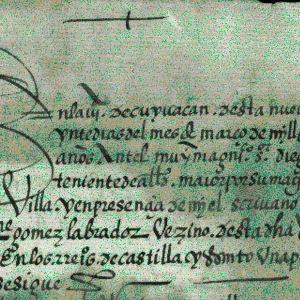 En la vi.ª de cuyuacan. desta nue
veynte dias del mes de março de mjll
años. Antel muy magn.co s.or die
teniente de allde. maior por su mag
villa y en presençia de mj el scrivano
gomez labrador Vezino. desta dha
En los rreis. de castilla y
de sigue